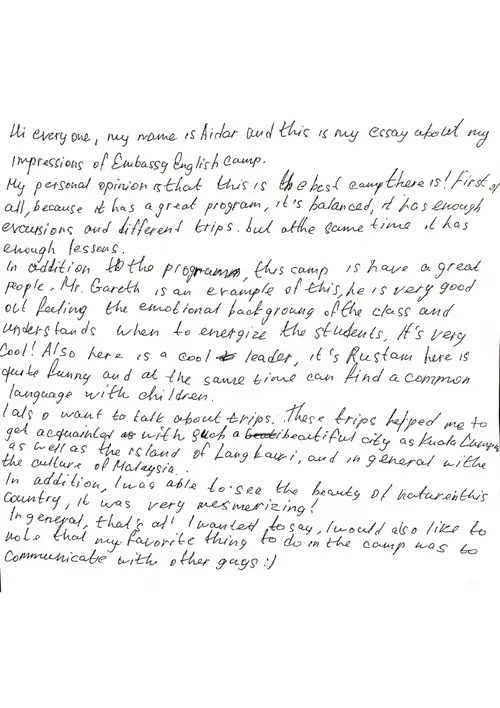 Hi everyone, my name is Aidar and this is my essay about my
impressions of Embassy English Camp.
My personal opinion is that this is the best camp there is! First of
all, because it has a great program, it is balanced, it has enough
excursions and different trips. but at the same time it has
enough lessons.
In addition to the program, this camp is have a great
people. Mr. Gareth is an example of this, he is very good
at feeling the emotional backgroung of the class and
understands when to energize the students, It's very
cool! Also here is a cool leader, it's Rustam here is
quite funny and at the same time can find a common
language with children.
I also want to talk about trips. These trips helped me to
get acquainted with such a beautiful city as Kuala Lumpur
as well as the island of Langkawi, and in general withe
the culture of Malaysia.
In addition, I was able to see the beauty of nature in this
country, it was very mesmerizing!
In general, that's all I wanted to say, I would also like to
note that my favorite thing to do in the camp was to
communicate with other guys :)